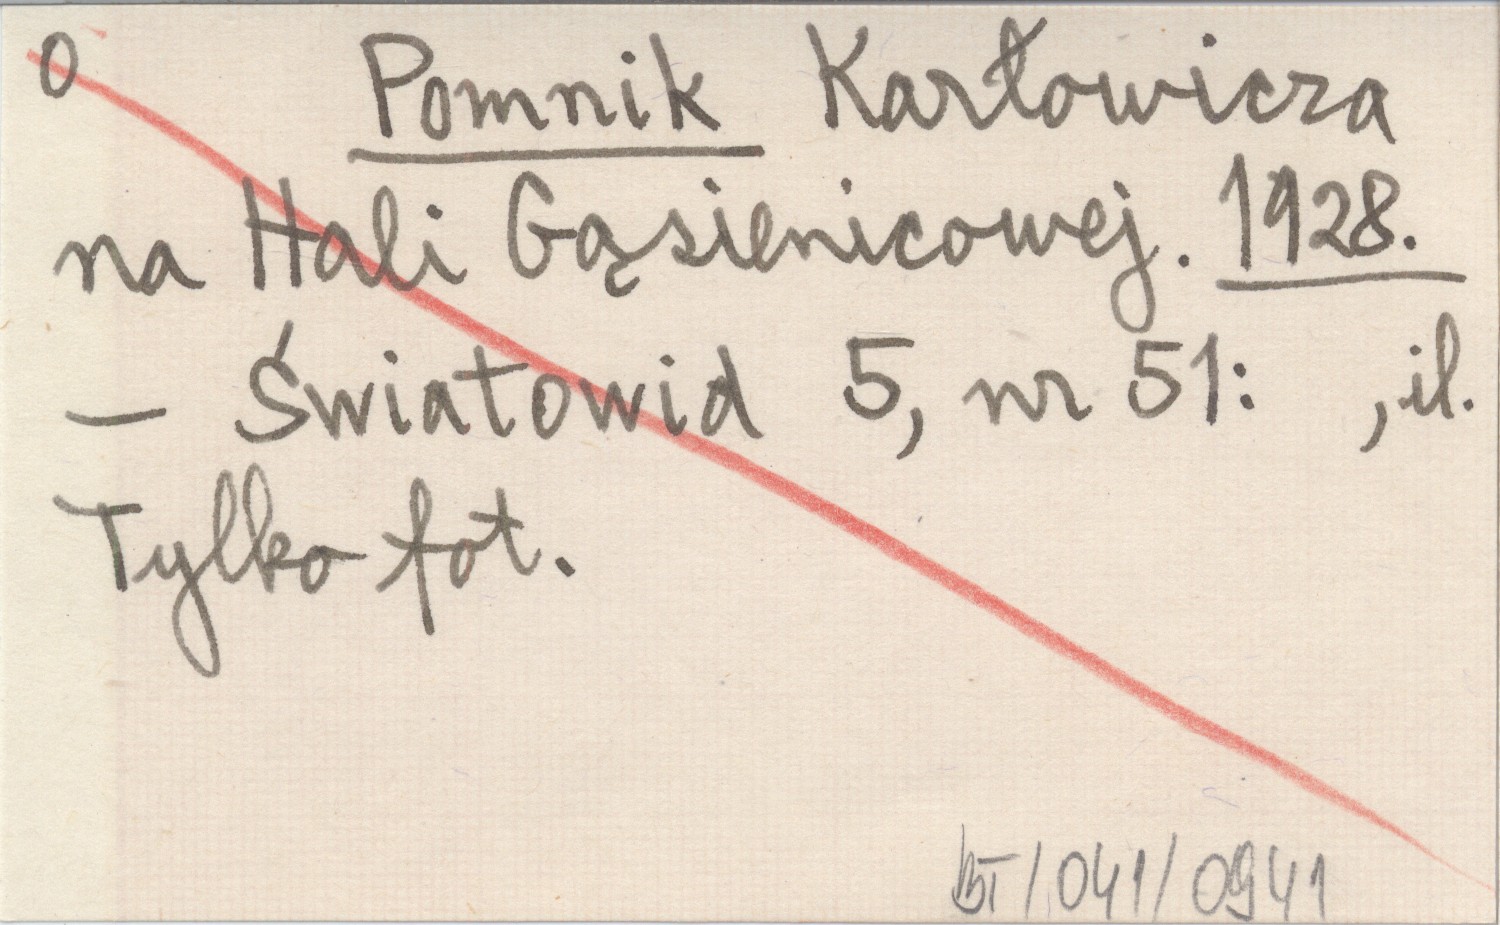 0 Pomnik Karłowicza
na Hali Gąsienicowej. 1928.
— Światowid 5, nr 51: , il.
Tylko fot.
BT/041/0941